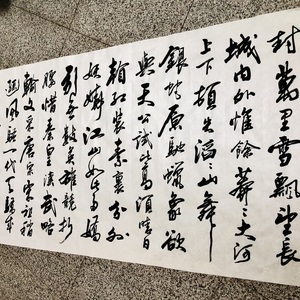 封萬里雪飄望長
城内外惟餘莽〻大河
上下頓失滔〻山舞
銀蛇原馳蠟象欲
與天公試比高須晴日
看红裝素裹分外
妖嬈江山如此多嬌
引無數英雄競折
腰惜秦皇漢武略
輸文采唐宗宋祖稍
遜風騷一代天驕